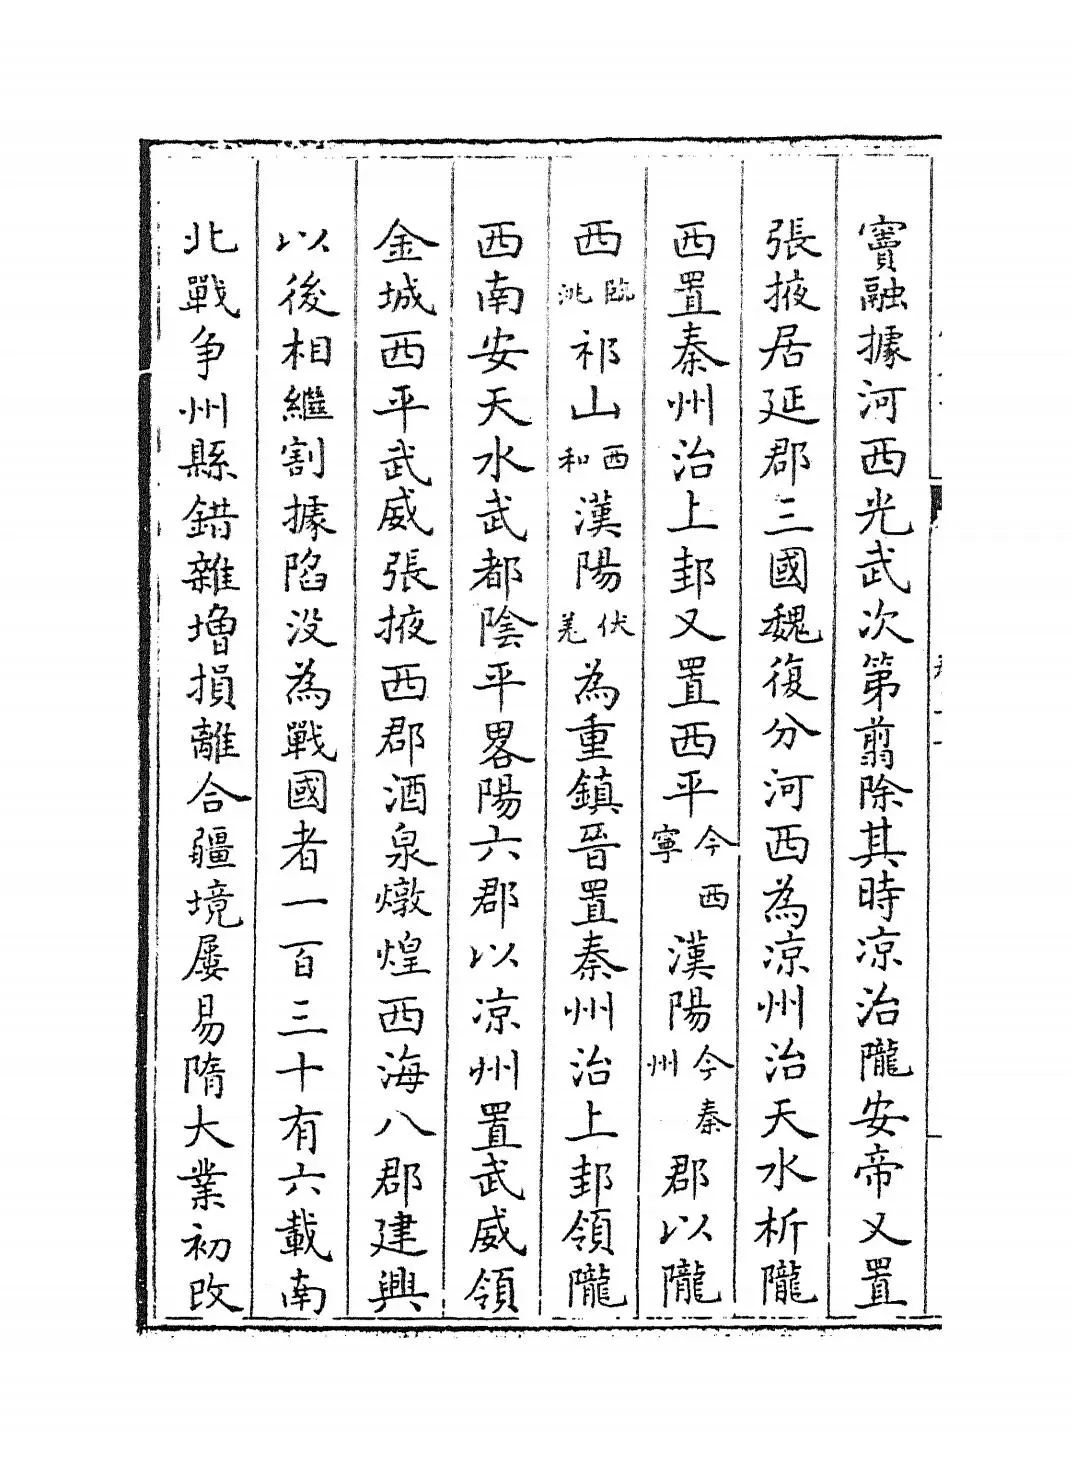 竇融據河西光武次第翦除其時凉治隴安帝又置
張掖居延郡三國魏復分河西為凉州治天水析隴
西置秦州治上邽又置西平今西寧漢陽今秦州郡以隴
西臨洮祁山西和漢陽伏羌為重鎮晉置秦州治上邽領隴
西南安天水武都陰平畧陽六郡以凉州置武威領
金城西平武威張掖西郡酒泉燉煌西海八郡建興
以後相繼割據陷没為戰國者一百三十有六載南
北戰争州縣錯雜増損離合疆境屢易隋大業初改